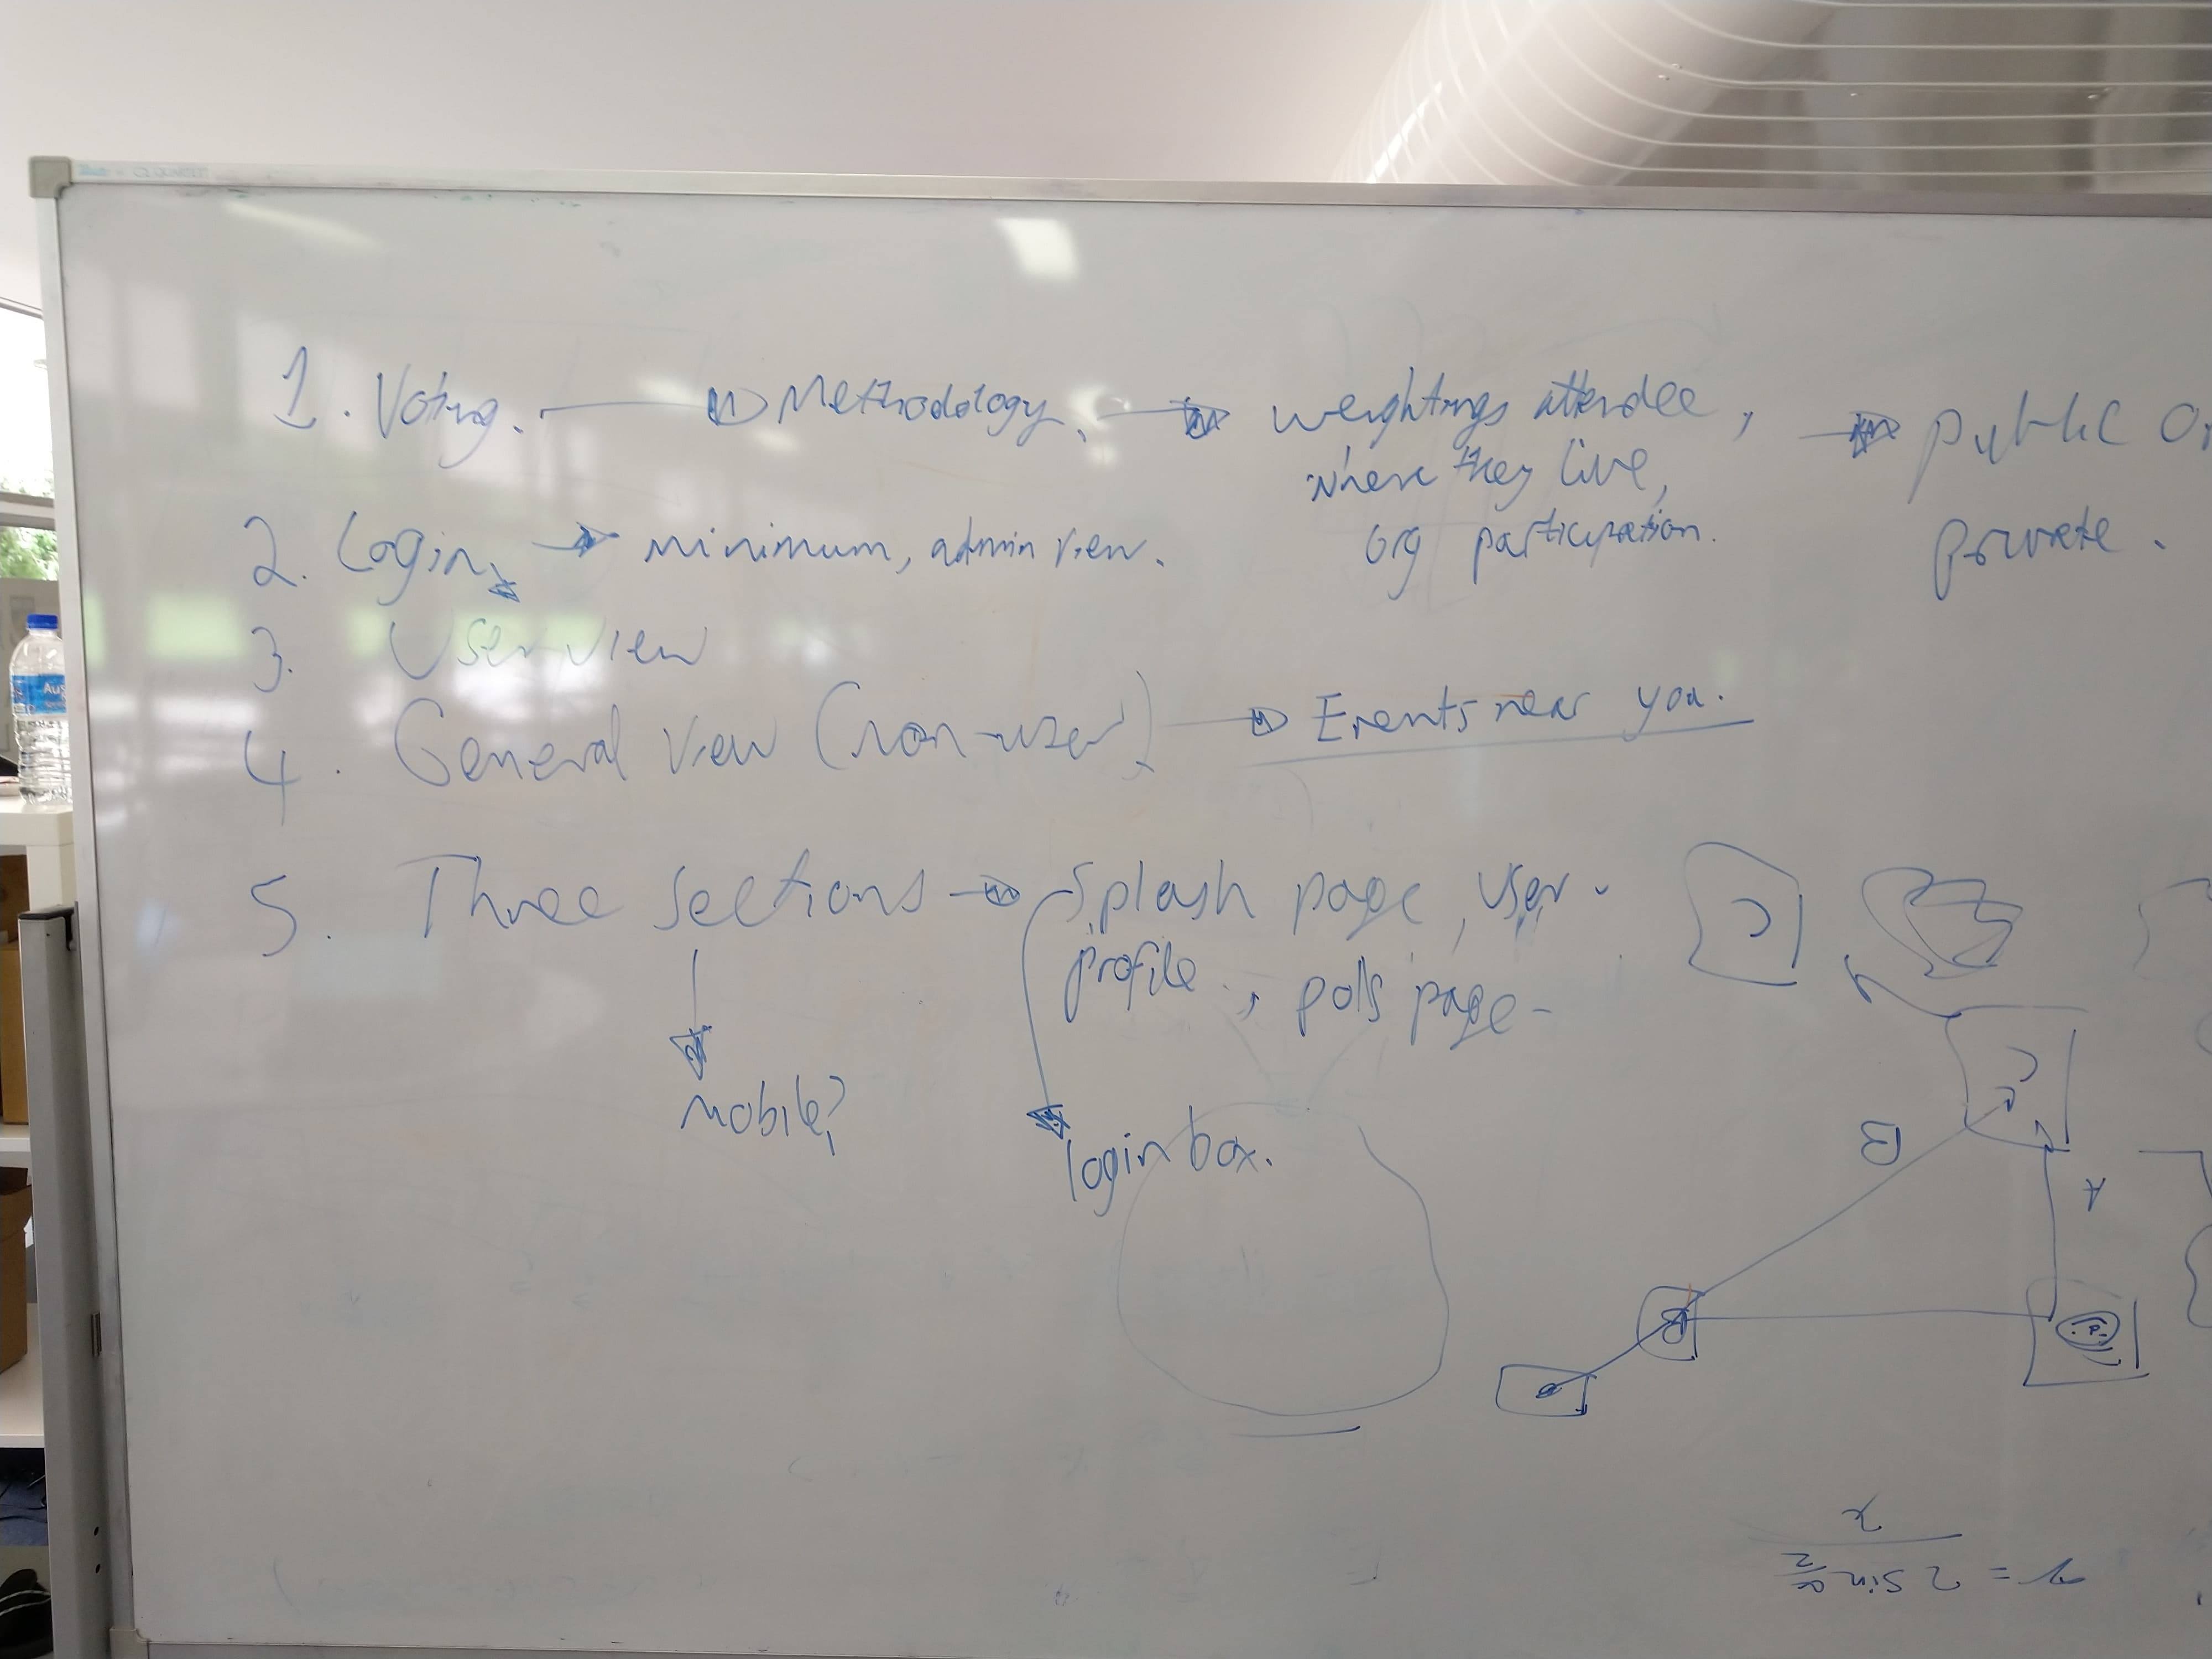 1. Voting. → Methodology. → weightings attendee, → public or
where they live, private.
org participation.
2. Login → minimum, admin view.
3. User view
4. General view (non-user) → Events near you.
5. Three sections → Splash page, user
profile, polls page
mobile?
login box.
B
A
B